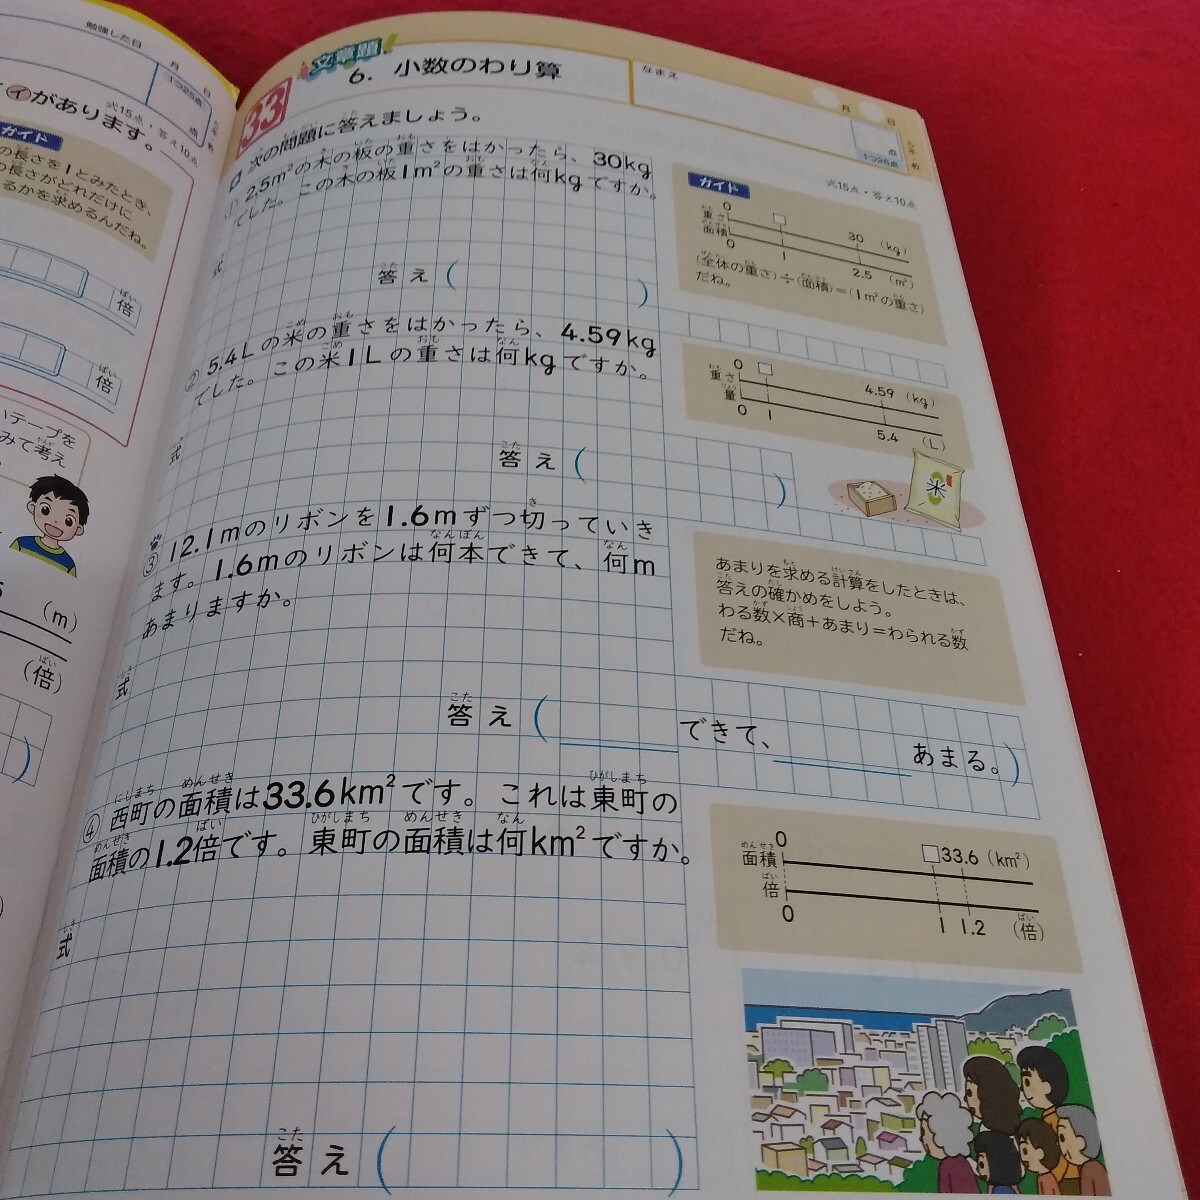 勉強した日 月 日
1つ25点
点
式15点・答え10点
㋑があります。
ガイド
の長さを1とみたとき、
の長さがどれだけに
るかを求めるんだね。
倍
倍
いテープを
みて考え
(m)
(倍)
33
文章題!
6. 小数のわり算
なまえ
月 日
点
1つ25点
式15点・答え10点
次の問題に答えましょう。
① 2.5m²の木の板の重さをはかったら、30kg
でした。この木の板1m²の重さは何kgですか。
式
答え( )
ガイド
0 □ 30 (kg)
重さ
面積
0 1 2.5 (m²)
(全体の重さ)÷(面積)=(1m²の重さ)
だね。
② 5.4Lの米の重さをはかったら、4.59kg
でした。この米1Lの重さは何kgですか。
式
答え( )
0 □ 4.59 (kg)
重さ
量
0 1 5.4 (L)
米
③ 12.1mのリボンを1.6mずつ切っていき
ます。1.6mのリボンは何本できて、何m
あまりますか。
式
答え( できて、 あまる。)
あまりを求める計算をしたときは、
答えの確かめをしよう。
わる数×商+あまり=わられる数
だね。
④ 西町の面積は33.6km²です。これは東町の
面積の1.2倍です。東町の面積は何km²ですか。
式
答え( )
0 □ 33.6 (km²)
面積
倍
0 1 1.2 (倍)